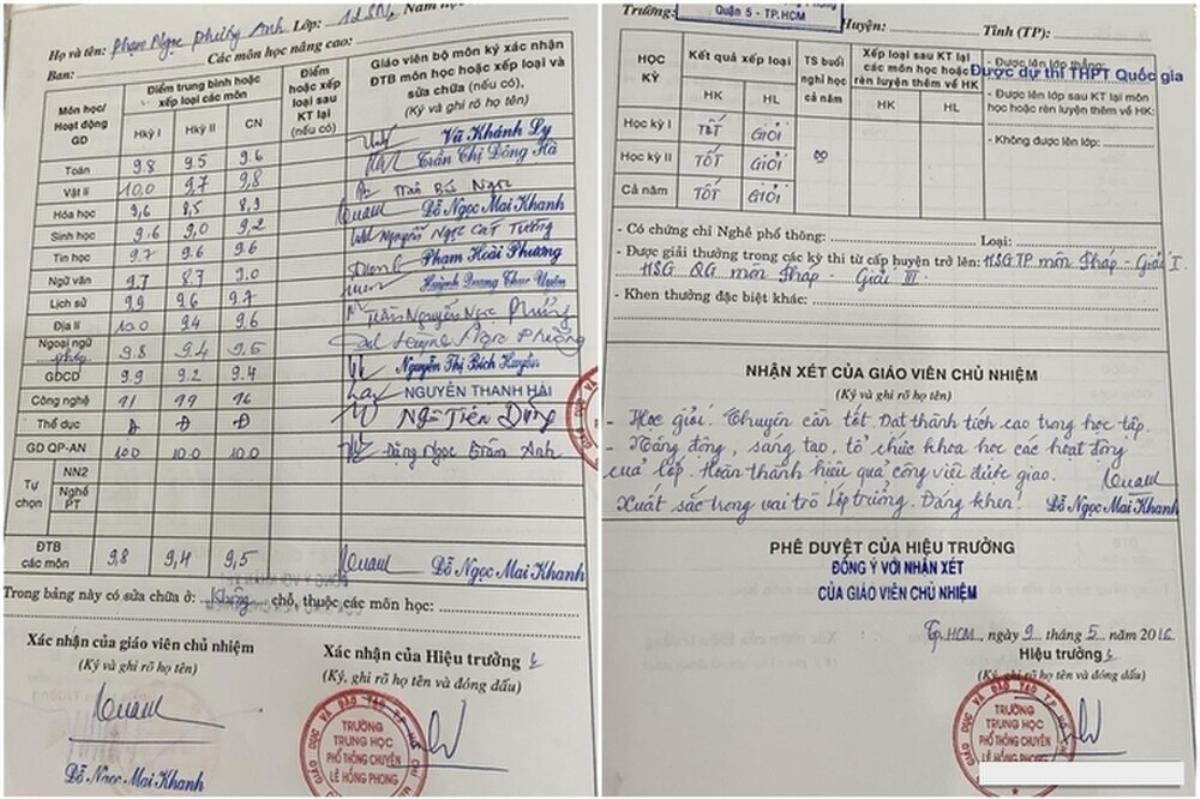 Họ và tên: Phạm Ngọc Phương Anh Lớp: Năm học
Ban: Các môn học nâng cao:
Môn học/ Hoạt động GD
Điểm trung bình hoặc xếp loại các môn
Hkỳ I Hkỳ II CN
Điểm hoặc xếp loại sau KT lại (nếu có)
Giáo viên bộ môn ký xác nhận ĐTB môn học hoặc xếp loại và sửa chữa (nếu có),
(Ký và ghi rõ họ tên)
Toán 9.8 9.5 9.6 Vũ Khánh Ly
Trần Thị Đông Hà
Vật lí 10,0 9,7 9,8 Ngọc
Hóa học 9,6 8,5 8,9 Đỗ Ngọc Mai Khanh
Sinh học 9.6 9,0 9,2 Nguyễn Ngọc Cát Tường
Tin học 9.7 9.6 9.6 Phạm Hoài Phương
Ngữ văn 9.7 8.7 9.0 Huỳnh Uyên
Lịch sử 9.9 9.6 9.7 Trần Nguyễn Ngọc
Địa lí 10.0 9.4 9.6 Ngọc
Ngoại ngữ pháp 9.8 9.4 9.5
GDCD 9.9 9.2 9.4 Nguyễn Thị Bích Huyền
Công nghệ NGUYỄN THANH HẢI
Thể dục Đ Đ Đ Ngô Tiến Dũng
GD QP-AN 10.0 10.0 10.0 Đặng Ngọc Trâm Anh
Tự chọn
NN2
Nghề PT
ĐTB các môn 9,8 9,4 9,5 Đỗ Ngọc Mai Khanh
Trong bảng này có sửa chữa ở: Không chỗ, thuộc các môn học:
Xác nhận của giáo viên chủ nhiệm
(Ký và ghi rõ họ tên)
Đỗ Ngọc Mai Khanh
Xác nhận của Hiệu trưởng
(Ký, ghi rõ họ tên và đóng dấu)
TRƯỜNG
TRUNG HỌC
PHỔ THÔNG CHUYÊN
LÊ HỒNG PHONG
Trường: Quận 5 - TP.HCM Huyện: Tỉnh (TP):
HỌC KỲ
Kết quả xếp loại
HK HL
TS buổi nghỉ học cả năm
Xếp loại sau KT lại các môn học hoặc rèn luyện thêm về HK
HK HL
- Được lên lớp thẳng:
Được dự thi THPT Quốc gia
- Được lên lớp sau KT lại môn học hoặc rèn luyện thêm về HK:
- Không được lên lớp:
Học kỳ I TỐT GIỎI
Học kỳ II TỐT GIỎI
Cả năm TỐT GIỎI
00
- Có chứng chỉ Nghề phổ thông: Loại:
- Được giải thưởng trong các kỳ thi từ cấp huyện trở lên: HSG TP môn Pháp - Giải I
HSG QG môn Pháp - Giải III
- Khen thưởng đặc biệt khác:
NHẬN XÉT CỦA GIÁO VIÊN CHỦ NHIỆM
(Ký và ghi rõ họ tên)
- Học giỏi. Chuyên cần tốt. Đạt thành tích cao trong học tập.
- Năng động, sáng tạo, tổ chức khoa học các hoạt động
của lớp. Hoàn thành hiệu quả công việc được giao.
Xuất sắc trong vai trò Lớp trưởng. Đáng khen! Đỗ Ngọc Mai Khanh
PHÊ DUYỆT CỦA HIỆU TRƯỞNG
ĐỒNG Ý VỚI NHẬN XÉT
CỦA GIÁO VIÊN CHỦ NHIỆM
Tp.HCM, ngày 9 tháng 5 năm 2016
Hiệu trưởng
(Ký, ghi rõ họ tên và đóng dấu)
TRƯỜNG
TRUNG HỌC
PHỔ THÔNG CHUYÊN
LÊ HỒNG PHONG